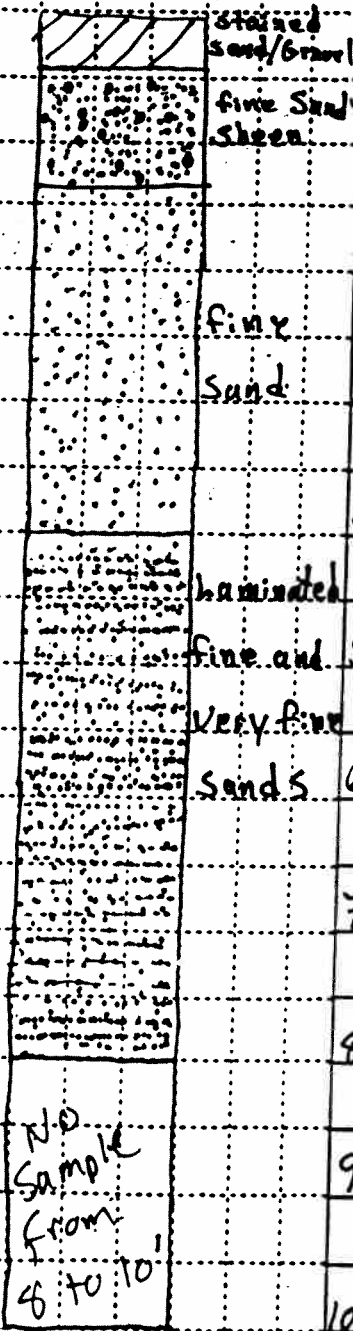 stained
sand/Gravel
fine Sand
Sheen
fine
Sand
Laminated
fine and
very fine
Sands
8
9
No
Sample
from
8 to 10'
10